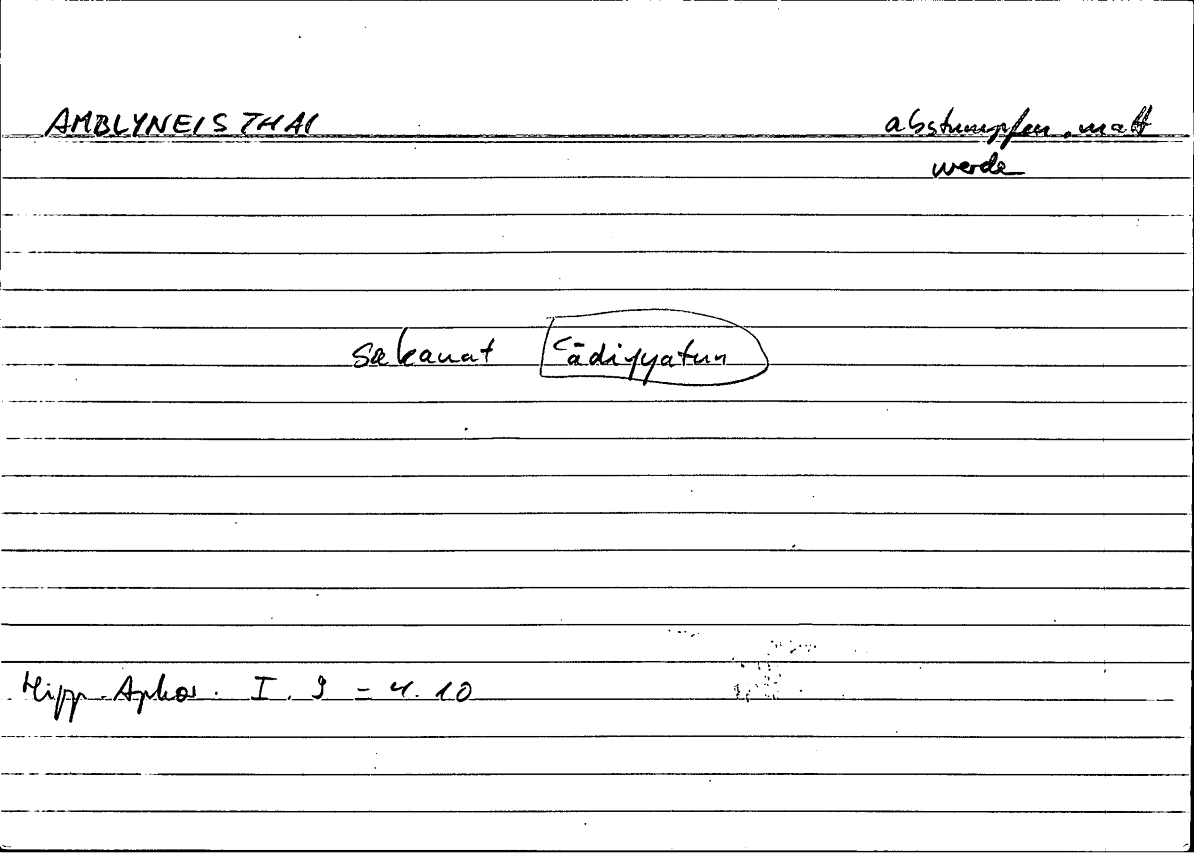 AMBLYNEISTHAI abstumpfen, matt
werde
sakanat ʿādiyyatun
Hipp. Aphor. I. 9 = 4. 10